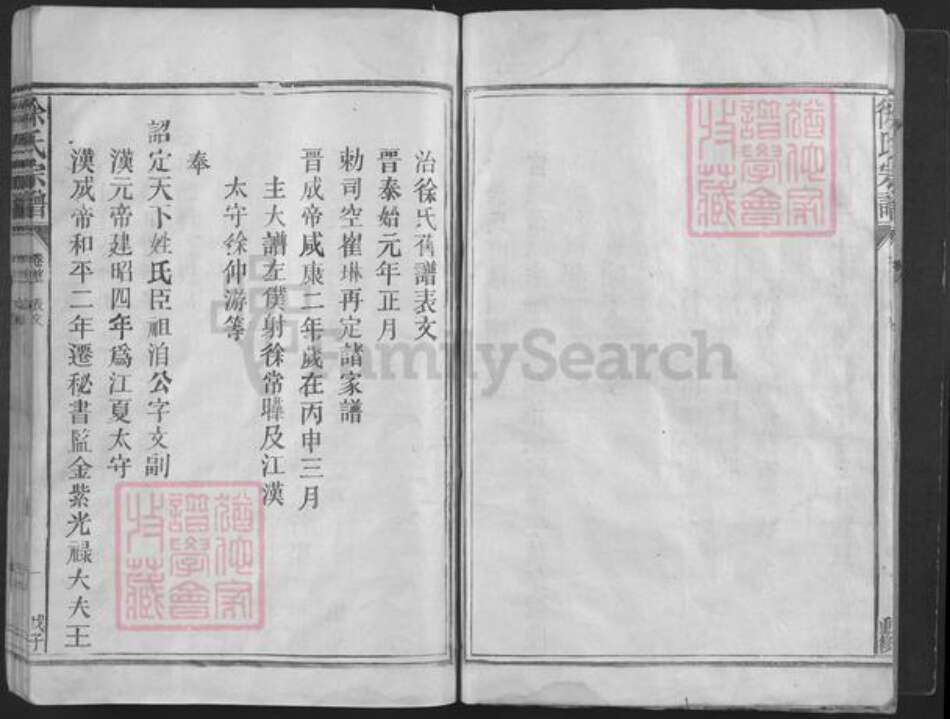 治徐氏舊譜表文
晋泰始元年正月
勅司空崔琳再定諸家譜
晋成帝咸康二年歲在丙申三月
主大譜左僕射徐常曅及江漢
太守徐仲游等
奉
詔定天下姓氏臣祖洎公字文副
漢元帝建昭四年爲江夏太守
漢成帝和平二年遷秘書監金紫光祿大夫王
徐氏宗譜
卷首
表文
一
戊子
徐氏宗譜
FamilySearch
譜學會
藏
譜學會
藏